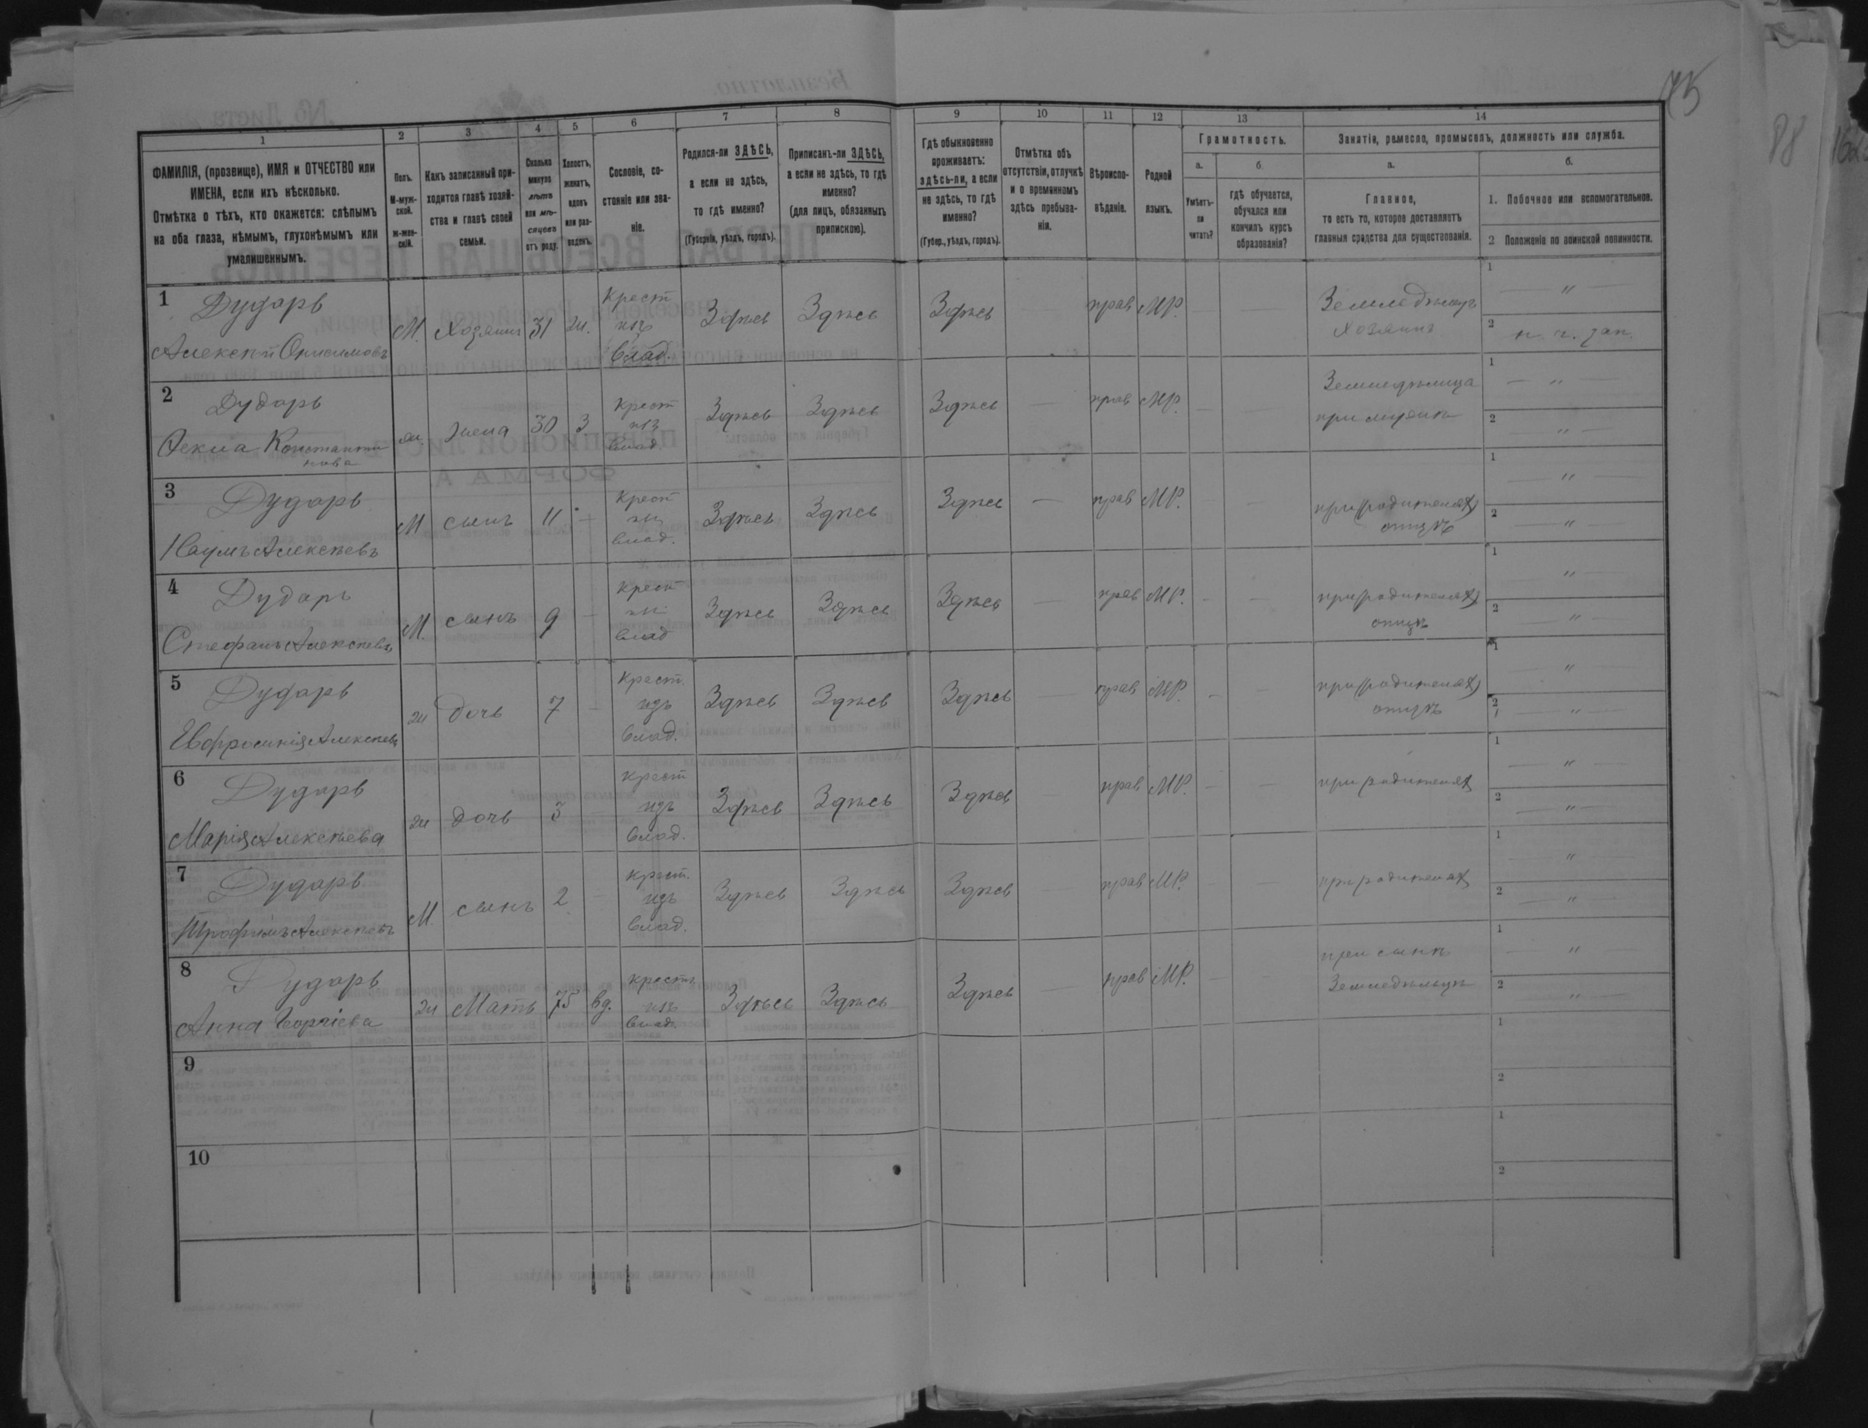 75
88
1 2 3 4 5 6 7 8 9 10 11 12 13 14
ФАМИЛІЯ, (прозвище), ИМЯ и ОТЧЕСТВО или ИМЕНА, если ихъ нѣсколько.
Отмѣтка о тѣхъ, кто окажется: слѣпымъ на оба глаза, нѣмымъ, глухонѣмымъ или умалишеннымъ.
Полъ. М-мужской. Ж-женскій.
Какъ записанный приходится главѣ хозяйства и главѣ своей семьи.
Сколько минуло лѣтъ или мѣсяцевъ отъ роду.
Холостъ, женатъ, вдовъ или разведенъ.
Сословіе, состояніе или званіе.
Родился-ли ЗДѢСЬ, а если не здѣсь, то гдѣ именно? (Губернія, уѣздъ, городъ).
Приписанъ-ли ЗДѢСЬ, а если не здѣсь, то гдѣ именно? (для лицъ, обязанныхъ припискою).
Гдѣ обыкновенно проживаетъ: здѣсь-ли, а если не здѣсь, то гдѣ именно? (Губер., уѣздъ, городъ).
Отмѣтка объ отсутствіи, отлучкѣ и о временномъ здѣсь пребываніи.
Вѣроисповѣданіе.
Родной языкъ.
Грамотность.
а. Умѣетъ-ли читать?
б. гдѣ обучается, обучался или кончилъ курсъ образованія?
Занятіе, ремесло, промыселъ, должность или служба.
а. Главное, то есть то, которое доставляетъ главныя средства для существованія.
б. 1. Побочное или вспомогательное.
2 Положеніе по воинской повинности.
1 Дударь Алексѣй Онисимовъ М. хозяинъ 31 ж. крест. изъ влад. Здѣсь Здѣсь Здѣсь — прав МР. — — Земледѣлецъ хозяинъ 1 — " — 2 н. ч. зап.
2 Дударь Фекла Константинова ж. жена 30 З крест изъ влад. Здѣсь Здѣсь Здѣсь — прав МР. — — Земледѣлица при мужѣ 1 — " — 2 — " —
3 Дударь Наумъ Алексѣевъ М сынъ 11 — крест изъ влад. Здѣсь Здѣсь Здѣсь — прав МР. — — при родителяхъ 1 — " — 2 — " —
4 Дударь Стефанъ Алексѣевъ М. сынъ 9 — крест изъ влад Здѣсь Здѣсь Здѣсь — прав МР. — — при родителяхъ 1 " — 2 — " —
5 Дударь Евфросинія Алексѣева ж дочь 7 — крест изъ влад. Здѣсь Здѣсь Здѣсь — прав МР. — — при родителяхъ 1 — " — 2 — " —
6 Дударь Марія Алексѣева ж дочь 3 — крест изъ влад. Здѣсь Здѣсь Здѣсь — прав МР. — — при родителяхъ 1 — " — 2 — " —
7 Дударь Трофимъ Алексѣевъ М. сынъ 2 — крест. изъ влад. Здѣсь Здѣсь Здѣсь — прав МР. — — при родителяхъ 1 — " — 2 — " —
8 Дударь Анна ж Мать 75 вд. крестъ изъ влад. Здѣсь Здѣсь Здѣсь — прав МР. — — при сынѣ Земледѣльцѣ 1 — " — 2 — " —
9 1 2
10 1 2